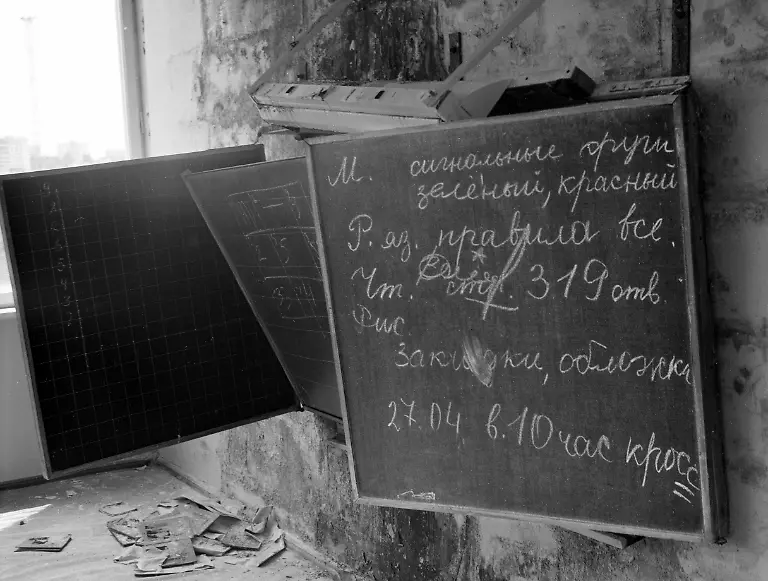 М. сигнальные круги
зелёный, красный
Р. яз. правила все.
Чт. стр. 319 отв.
Рис.
Закладки, обложки
27.04 в 10 час кросс